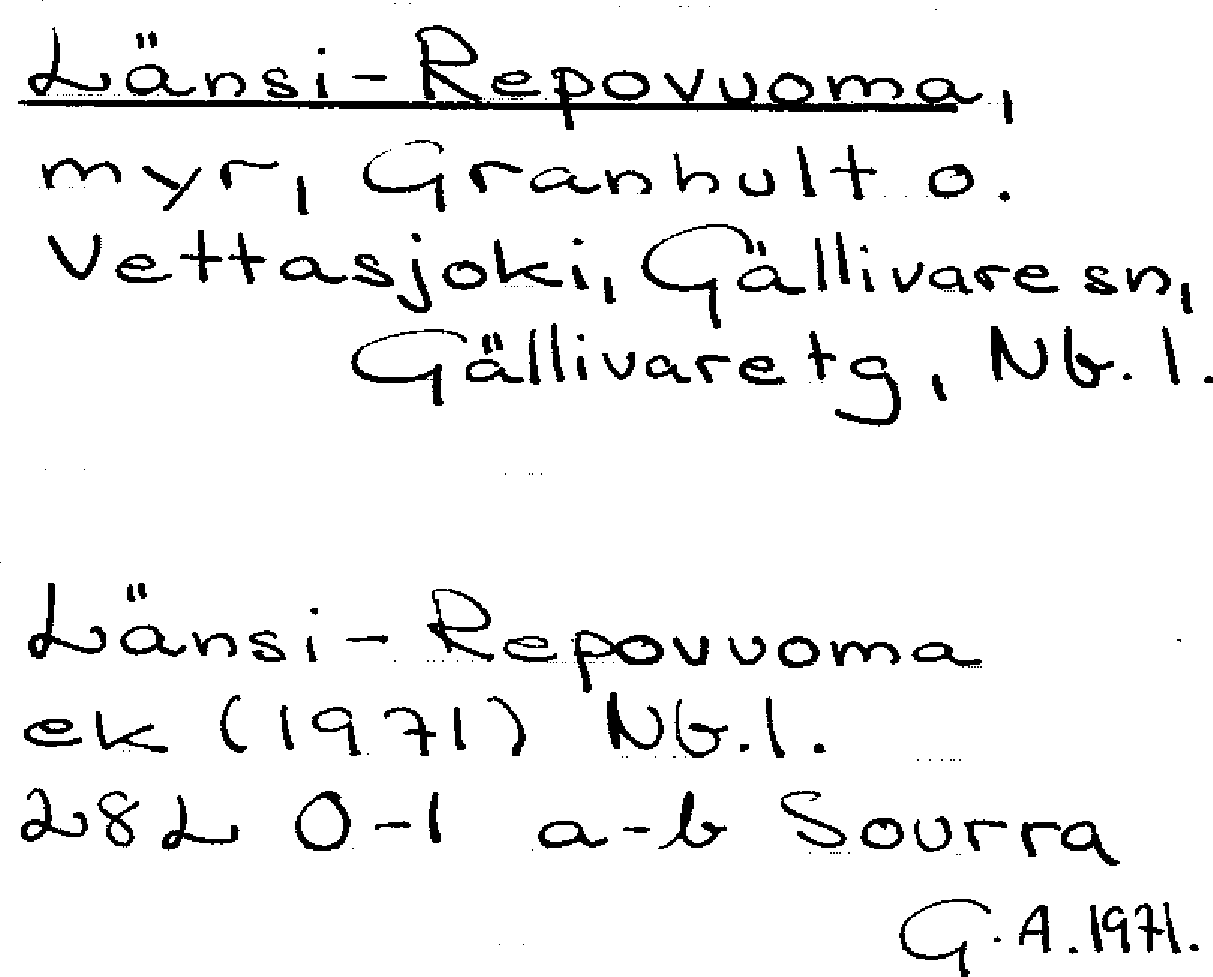 Länsi-Repovuoma,
myr, Granhult o.
Vettasjoki, Gällivare sn,
Gällivare tg, Nb. l.
Länsi-Repovuoma
ek (1971) Nb. l.
28L 0-1 a-b Sourra
G. A. 1971.